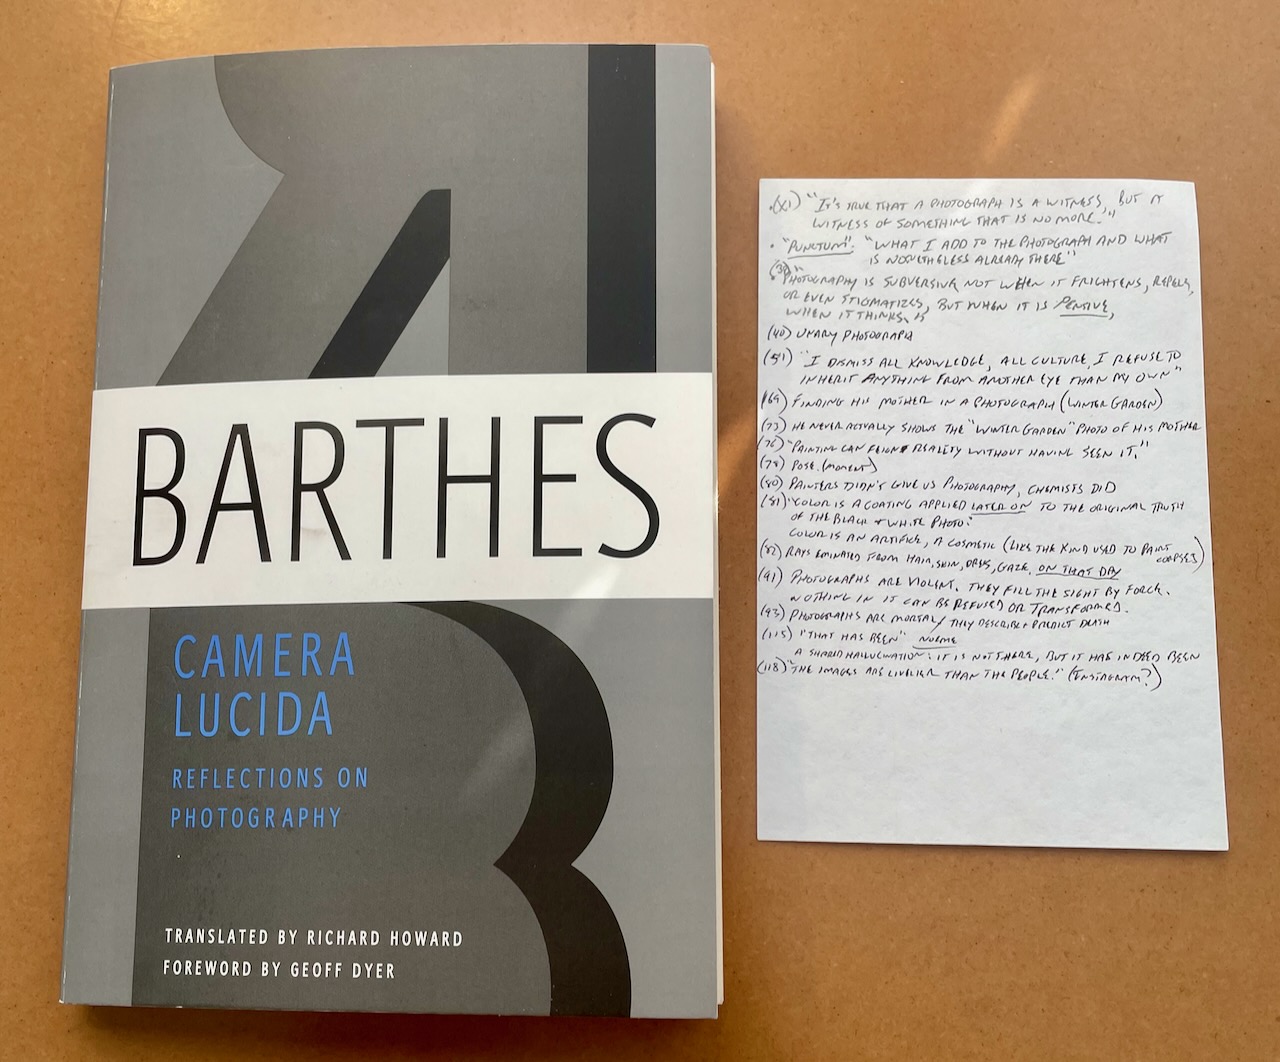 BARTHES
CAMERA
LUCIDA
REFLECTIONS ON
PHOTOGRAPHY
TRANSLATED BY RICHARD HOWARD
FOREWORD BY GEOFF DYER
(XI) "IT'S TRUE THAT A PHOTOGRAPH IS A WITNESS, BUT A
WITNESS OF SOMETHING THAT IS NO MORE."
• "PUNCTUM": "WHAT I ADD TO THE PHOTOGRAPH AND WHAT
IS NONETHELESS ALREADY THERE"
"PHOTOGRAPHY IS SUBVERSIVE NOT WHEN IT FRIGHTENS, REPELS,
OR EVEN STIGMATIZES, BUT WHEN IT IS PENSIVE,
WHEN IT THINKS."
(40) UNARY PHOTOGRAPH
(51) "I DISMISS ALL KNOWLEDGE, ALL CULTURE, I REFUSE TO
INHERIT ANYTHING FROM ANOTHER EYE THAN MY OWN"
(69) FINDING HIS MOTHER IN A PHOTOGRAPH (WINTER GARDEN)
(73) HE NEVER ACTUALLY SHOWS THE "WINTER GARDEN" PHOTO OF HIS MOTHER
(76) "PAINTING CAN FEIGN REALITY WITHOUT HAVING SEEN IT."
(78) POSE. (MOMENT)
(80) PAINTERS DIDN'T GIVE US PHOTOGRAPHY, CHEMISTS DID
(81) "COLOR IS A COATING APPLIED LATER ON TO THE ORIGINAL TRUTH
OF THE BLACK + WHITE PHOTO."
COLOR IS AN ARTIFICE, A COSMETIC (LIKE THE KIND USED TO PAINT CORPSES)
(82) RAYS EMINATED FROM HAIR, SKIN, DRESS, GAZE, ON THAT DAY
(91) PHOTOGRAPHS ARE VIOLENT. THEY FILL THE SIGHT BY FORCE.
NOTHING IN IT CAN BE REFUSED OR TRANSFORMED.
(93) PHOTOGRAPHS ARE MORTAL / THEY DESCRIBE + PREDICT DEATH
(115) "THAT HAS BEEN" NOEME
A SHARED HALLUCINATION: IT IS NOT THERE, BUT IT HAS INDEED BEEN
(118) "THE IMAGES ARE LIVELIER THAN THE PEOPLE." (INSTAGRAM?)